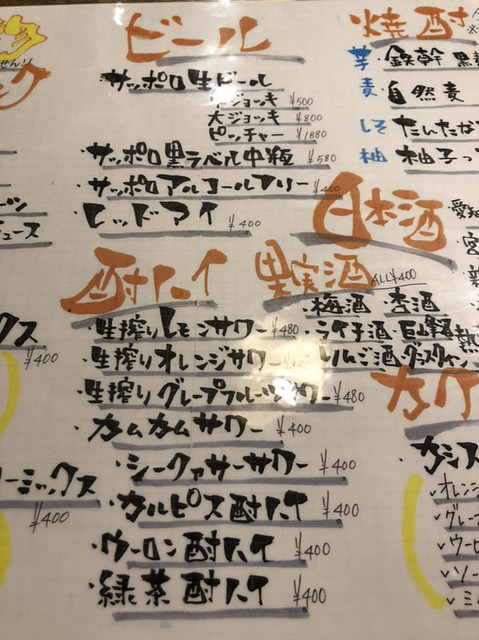 せんり
ック
ジュース
ックス
¥400
リーミックス
¥400
ビール
・サッポロ生ビール
ジョッキ ¥500
大ジョッキ ¥800
ピッチャー ¥1880
・サッポロ黒ラベル中瓶 ¥580
・サッポロアルコールフリー ¥400
・レッドアイ ¥400
酎ハイ
・生搾りレモンサワー ¥480
・生搾りオレンジサワー
・生搾りグレープフルーツサワー ¥480
・カムカムサワー ¥400
・シークァサーサワー ¥400
・カルピス酎ハイ ¥400
・ウーロン酎ハイ ¥400
・緑茶酎ハイ ¥400
果実酒 ALL¥400
・梅酒・杏酒
・ライチ酒・巨峰
・りんご酒・グラスワイン
焼酎
芋・鉄幹 黒
麦・自然麦
しそ・たんたな
柚・柚子っ
日本酒
愛知
宮
新
熱
カク
・カシス
✓オレンジ
✓グレー
✓ウーロ
✓ソー
✓ミル